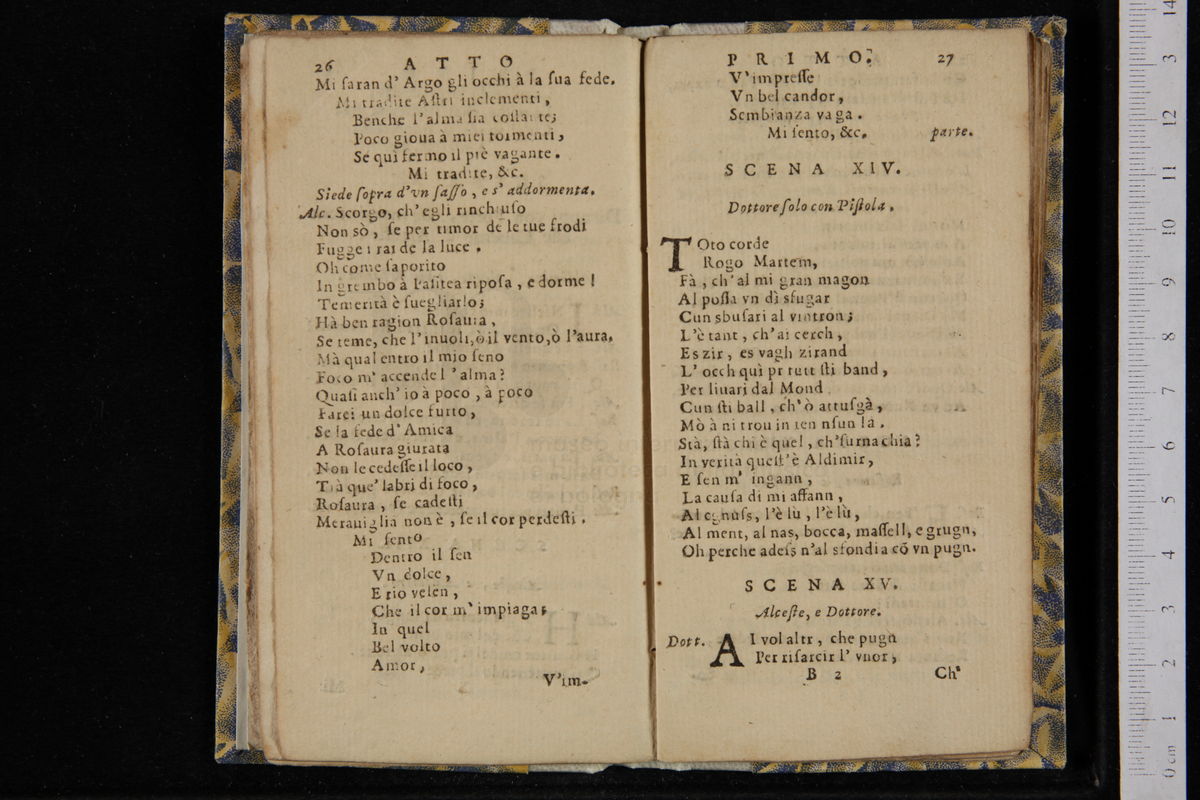 26 ATTO
Mi saran d' Argo gli occhi à la sua fede.
Mi tradite Astri inclementi,
Benche l'alma sia costante;
Poco gioua à miei tormenti,
Se quì fermo il piè vagante.
Mi tradite, &c.
Siede sopra d'vn sasso, e s' addormenta.
Alc. Scorgo, ch' egli rinchiuso
Non sò, se per timor de le tue frodi
Fugge i rai de la luce.
Oh come saporito
In grembo à Palitea riposa, e dorme!
Temerità è suegliarlo;
Hà ben ragion Rosaura,
Se teme, che l'inuoli, ò il vento, ò l'aura.
Mà qual entro il mio seno
Foco m' accende l'alma?
Quasi anch' io à poco, à poco
Farei un dolce furto,
Se la fede d' Amica
A Rosaura giurata
Non le cedesse il loco,
Trà que' labri di foco,
Rosaura, se cadesti
Merauiglia non è, se il cor perdesti.
Mi sento
Dentro il sen
Vn dolce,
E rio velen,
Che il cor m' impiaga;
In quel
Bel volto
Amor,
V'im-
PRIMO. 27
V'impresse
Vn bel candor,
Sembianza vaga.
Mi sento, &c. parte.
SCENA XIV.
Dottore solo con Pistola.
TOto corde
Rogo Martem,
Fà, ch' al mi gran magon
Al possa vn dì sfugar
Cun sbusari al vintron;
L'è tant, ch' ai cerch,
Es zir, es vagh zirand
L' occh quì pr tutt sti band,
Per liuari dal Mond
Cun sti ball, ch' ò attusgà,
Mò à ni trou in ten nsun la.
Stà, stà chi è quel, ch' surnachia?
In verità quest' è Aldimir,
E sen m' ingann,
La causa di mi affann,
Al cgnuss, l'è lù, l'è lù,
Al ment, al nas, bocca, massell, e grugn,
Oh perche adess n'al sfondia cō vn pugn.
SCENA XV.
Alceste, e Dottore.
Dott. AI vol altr, che pugn
Per risarcir l' vnor,
B 2 Ch'